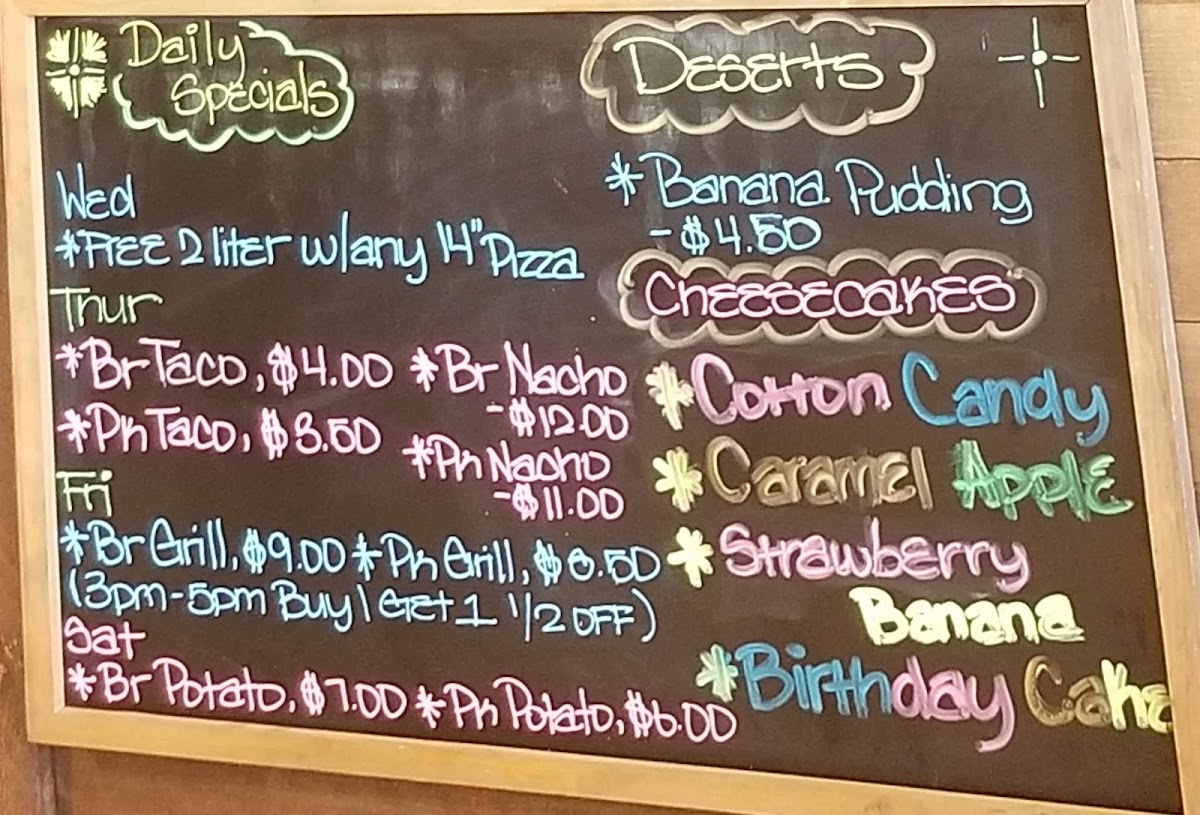 Daily
Specials
Wed
*Free 2 liter w/any 14" Pizza
Thur
*Br Taco, $4.00 *Br Nacho
-$12.00
*Pk Taco, $3.50 *Pk Nacho
-$11.00
Fri
*Br Grill, $9.00 *Pk Grill, $8.50
(3pm-5pm Buy 1 Get 1 1/2 OFF)
Sat
*Br Potato, $7.00 *Pk Potato, $6.00
Deserts
*Banana Pudding
-$4.50
Cheesecakes
*Cotton Candy
*Caramel Apple
*Strawberry
Banana
*Birthday Cake